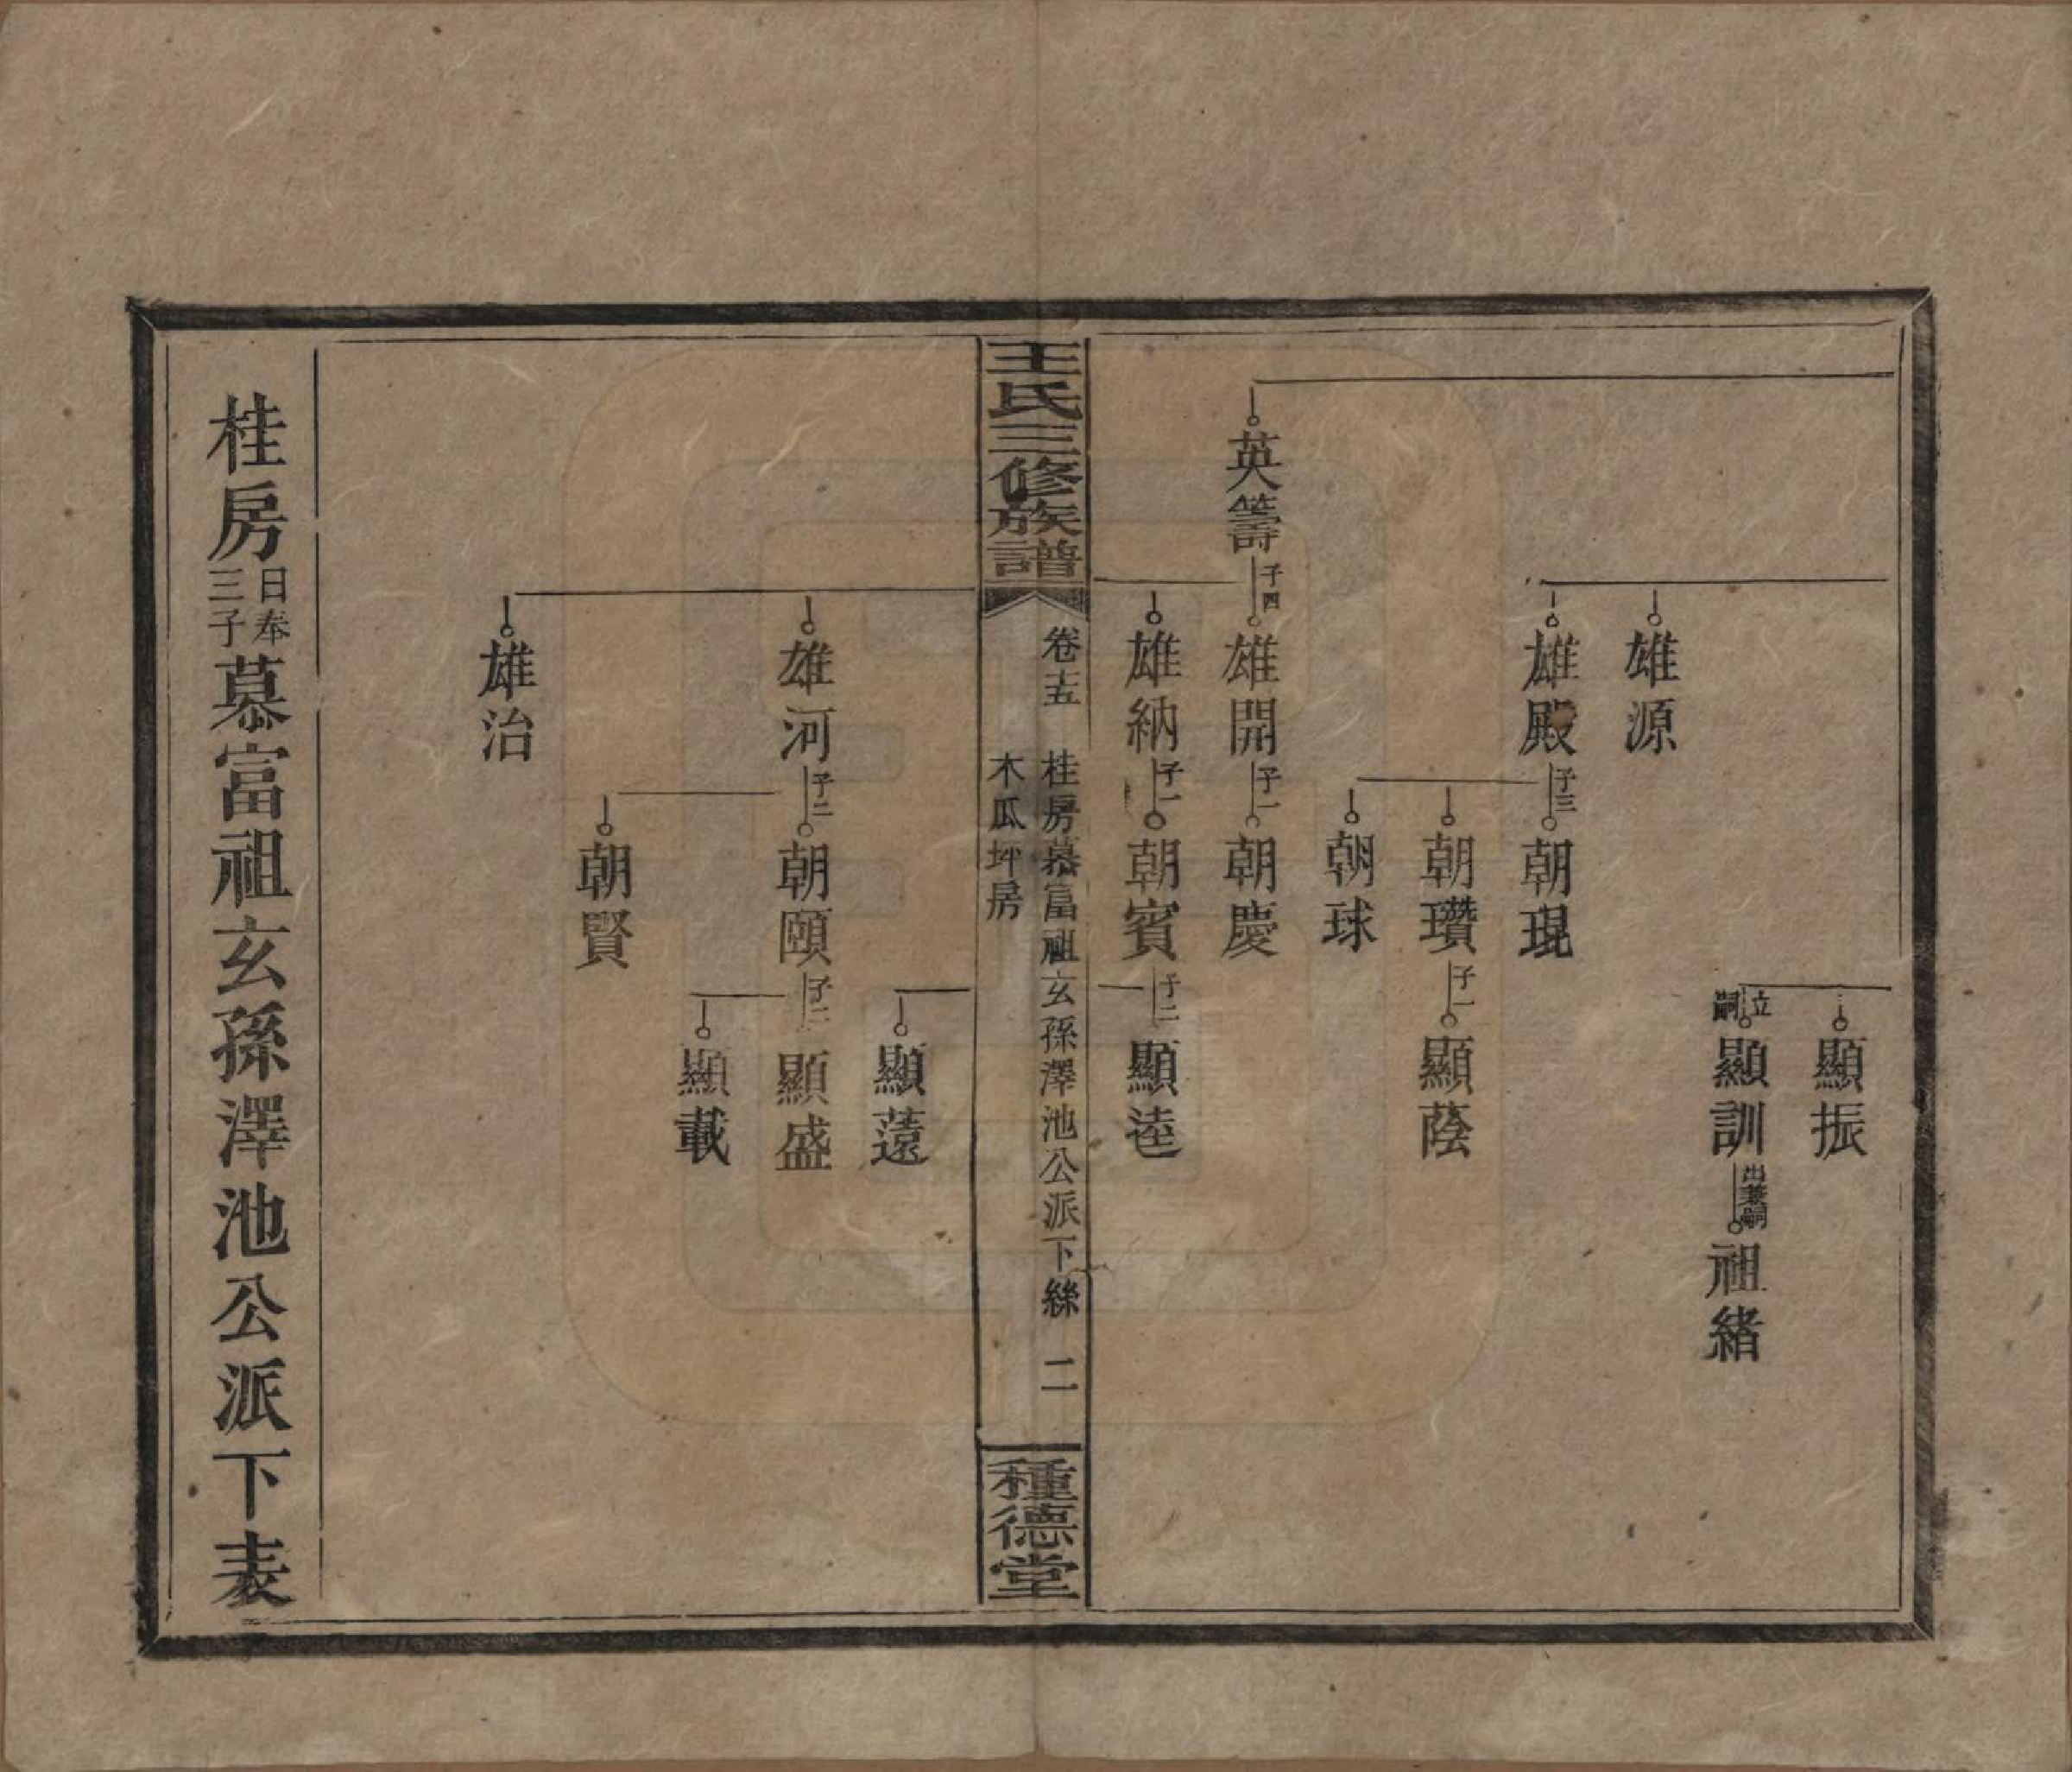 顯振
立嗣
顯訓
出兼嗣
祖緒
雄源
雄殿
子三
朝琨
朝瓚
子一
顯蔭
朝球
英籌
子四
雄開
子一
朝慶
雄納
子一
朝賓
子二
顯逵
王氏三修族譜
卷十五
桂房慕富祖玄孫澤池公派下絲
木瓜坪房
二
種德堂
顯薳
雄河
子二
朝頤
子二
顯盛
顯載
朝賢
雄治
桂房日奉三子慕富祖玄孫澤池公派下表